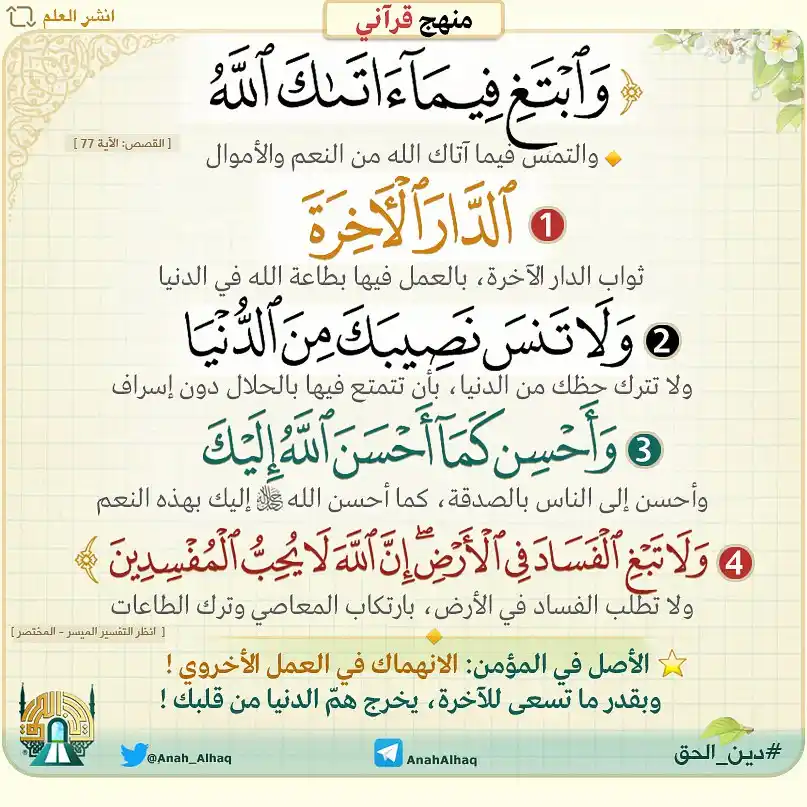 انشر العلم
منهج قرآني
﴿ وَٱبْتَغِ فِيمَآ ءَاتَىٰكَ ٱللَّهُ
[ القصص: الآية 77 ]
والتمس فيما آتاك الله من النعم والأموال
1 ٱلدَّارَ ٱلْأَخِرَةَ
ثواب الدار الآخرة، بالعمل فيها بطاعة الله في الدنيا
2 وَلَا تَنسَ نَصِيبَكَ مِنَ ٱلدُّنْيَا
ولا تترك حظك من الدنيا، بأن تتمتع فيها بالحلال دون إسراف
3 وَأَحْسِن كَمَآ أَحْسَنَ ٱللَّهُ إِلَيْكَ
وأحسن إلى الناس بالصدقة، كما أحسن الله ﷻ إليك بهذه النعم
4 وَلَا تَبْغِ ٱلْفَسَادَ فِى ٱلْأَرْضِ ۖ إِنَّ ٱللَّهَ لَا يُحِبُّ ٱلْمُفْسِدِينَ ﴾
ولا تطلب الفساد في الأرض، بارتكاب المعاصي وترك الطاعات
[ انظر التفسير الميسر - المختصر ]
الأصل في المؤمن: الانهماك في العمل الأخروي !
وبقدر ما تسعى للآخرة، يخرج همّ الدنيا من قلبك !
#دين_الحق
AnahAlhaq
@Anah_Alhaq